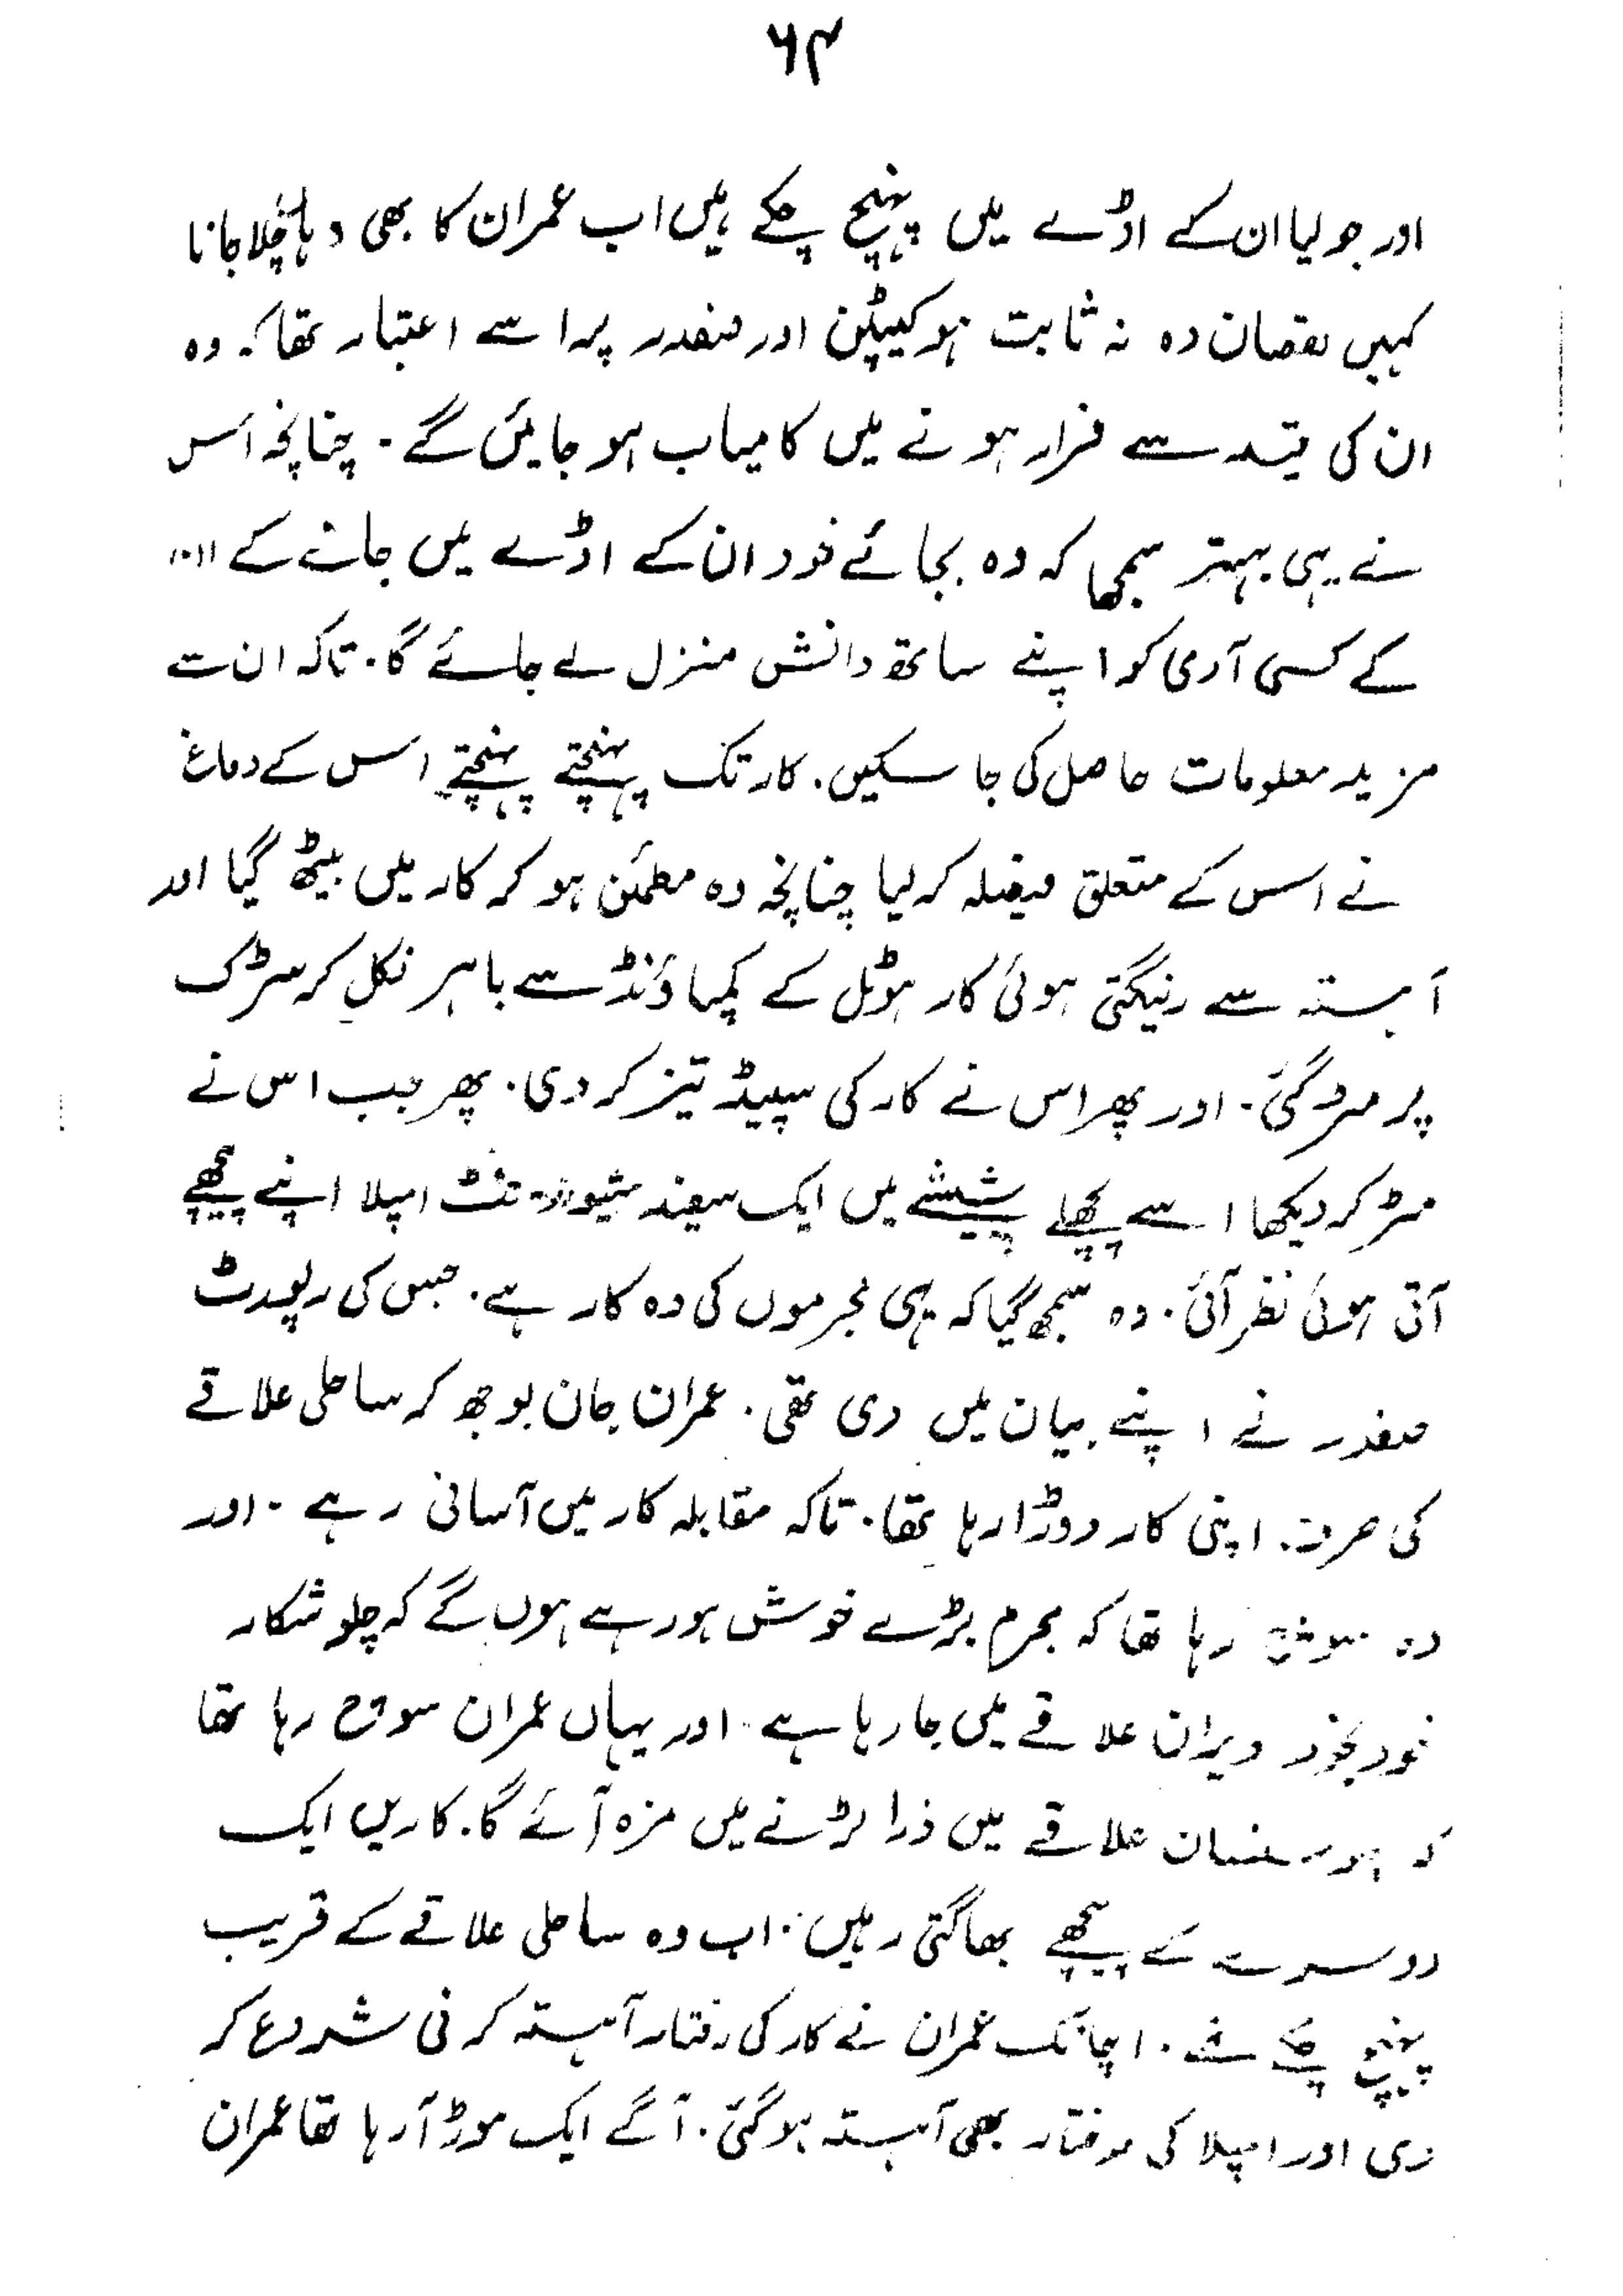 ۶۴
اور جولیا ان کے اڈے میں پہنچ چکے ہیں اب عمران کا بھی وہاں چلا جانا
کہیں نقصان دہ نہ ثابت ہو کیپٹن اور صفدر پر اسے اعتبار تھا کہ وہ
ان کی قید سے فرار ہونے میں کامیاب ہو جائیں گے۔ چنانچہ اس
نے یہی بہتر سمجھا کہ وہ بجائے خود ان کے اڈے میں جانے کے
کے کسی آدمی کو اپنے ساتھ دانش منزل لے جائے گا۔ تاکہ ان سے
مزید معلومات حاصل کی جا سکیں۔ کار تک پہنچتے پہنچتے اس کے دماغ
نے اس کے متعلق فیصلہ کر لیا چنانچہ وہ مطمئن ہو کر کار میں بیٹھ گیا اور
آہستہ سے رینگتی ہوئی کار ہوٹل کے کمپاؤنڈ سے باہر نکل کر سڑک
پر مڑ گئی۔ اور پھر اس نے کار کی سپیڈ تیز کر دی۔ پھر جب اس نے
مڑ کر دیکھا اسے پچھلے شیشے میں ایک سفید امپلا اپنے پیچھے
آتی ہوئی نظر آئی۔ وہ سمجھ گیا کہ یہی مجرموں کی وہ کار ہے۔ جس کی رپورٹ
صفدر نے اپنے بیان میں دی تھی۔ عمران جان بوجھ کر ساحلی علاقے
کی طرف اپنی کار دوڑا رہا تھا۔ تاکہ مقابلہ کار میں آسانی رہے۔ اور
وہ سوچ رہا تھا کہ مجرم بڑے خوش ہو رہے ہوں گے کہ چلو شکار
خود بخود ویران علاقے میں جا رہا ہے۔ اور یہاں عمران سوچ رہا تھا
کہ سنسان علاقے میں ذرا لڑنے میں مزہ آئے گا۔ کاریں ایک
دوسرے کے پیچھے بھاگتی رہیں۔ اب وہ ساحلی علاقے کے قریب
پہنچ چکے تھے۔ اچانک عمران نے کار کی رفتار آہستہ کرنی شروع کر
دی اور امپلا کی رفتار بھی آہستہ ہو گئی۔ آگے ایک موڑ آ رہا تھا عمران